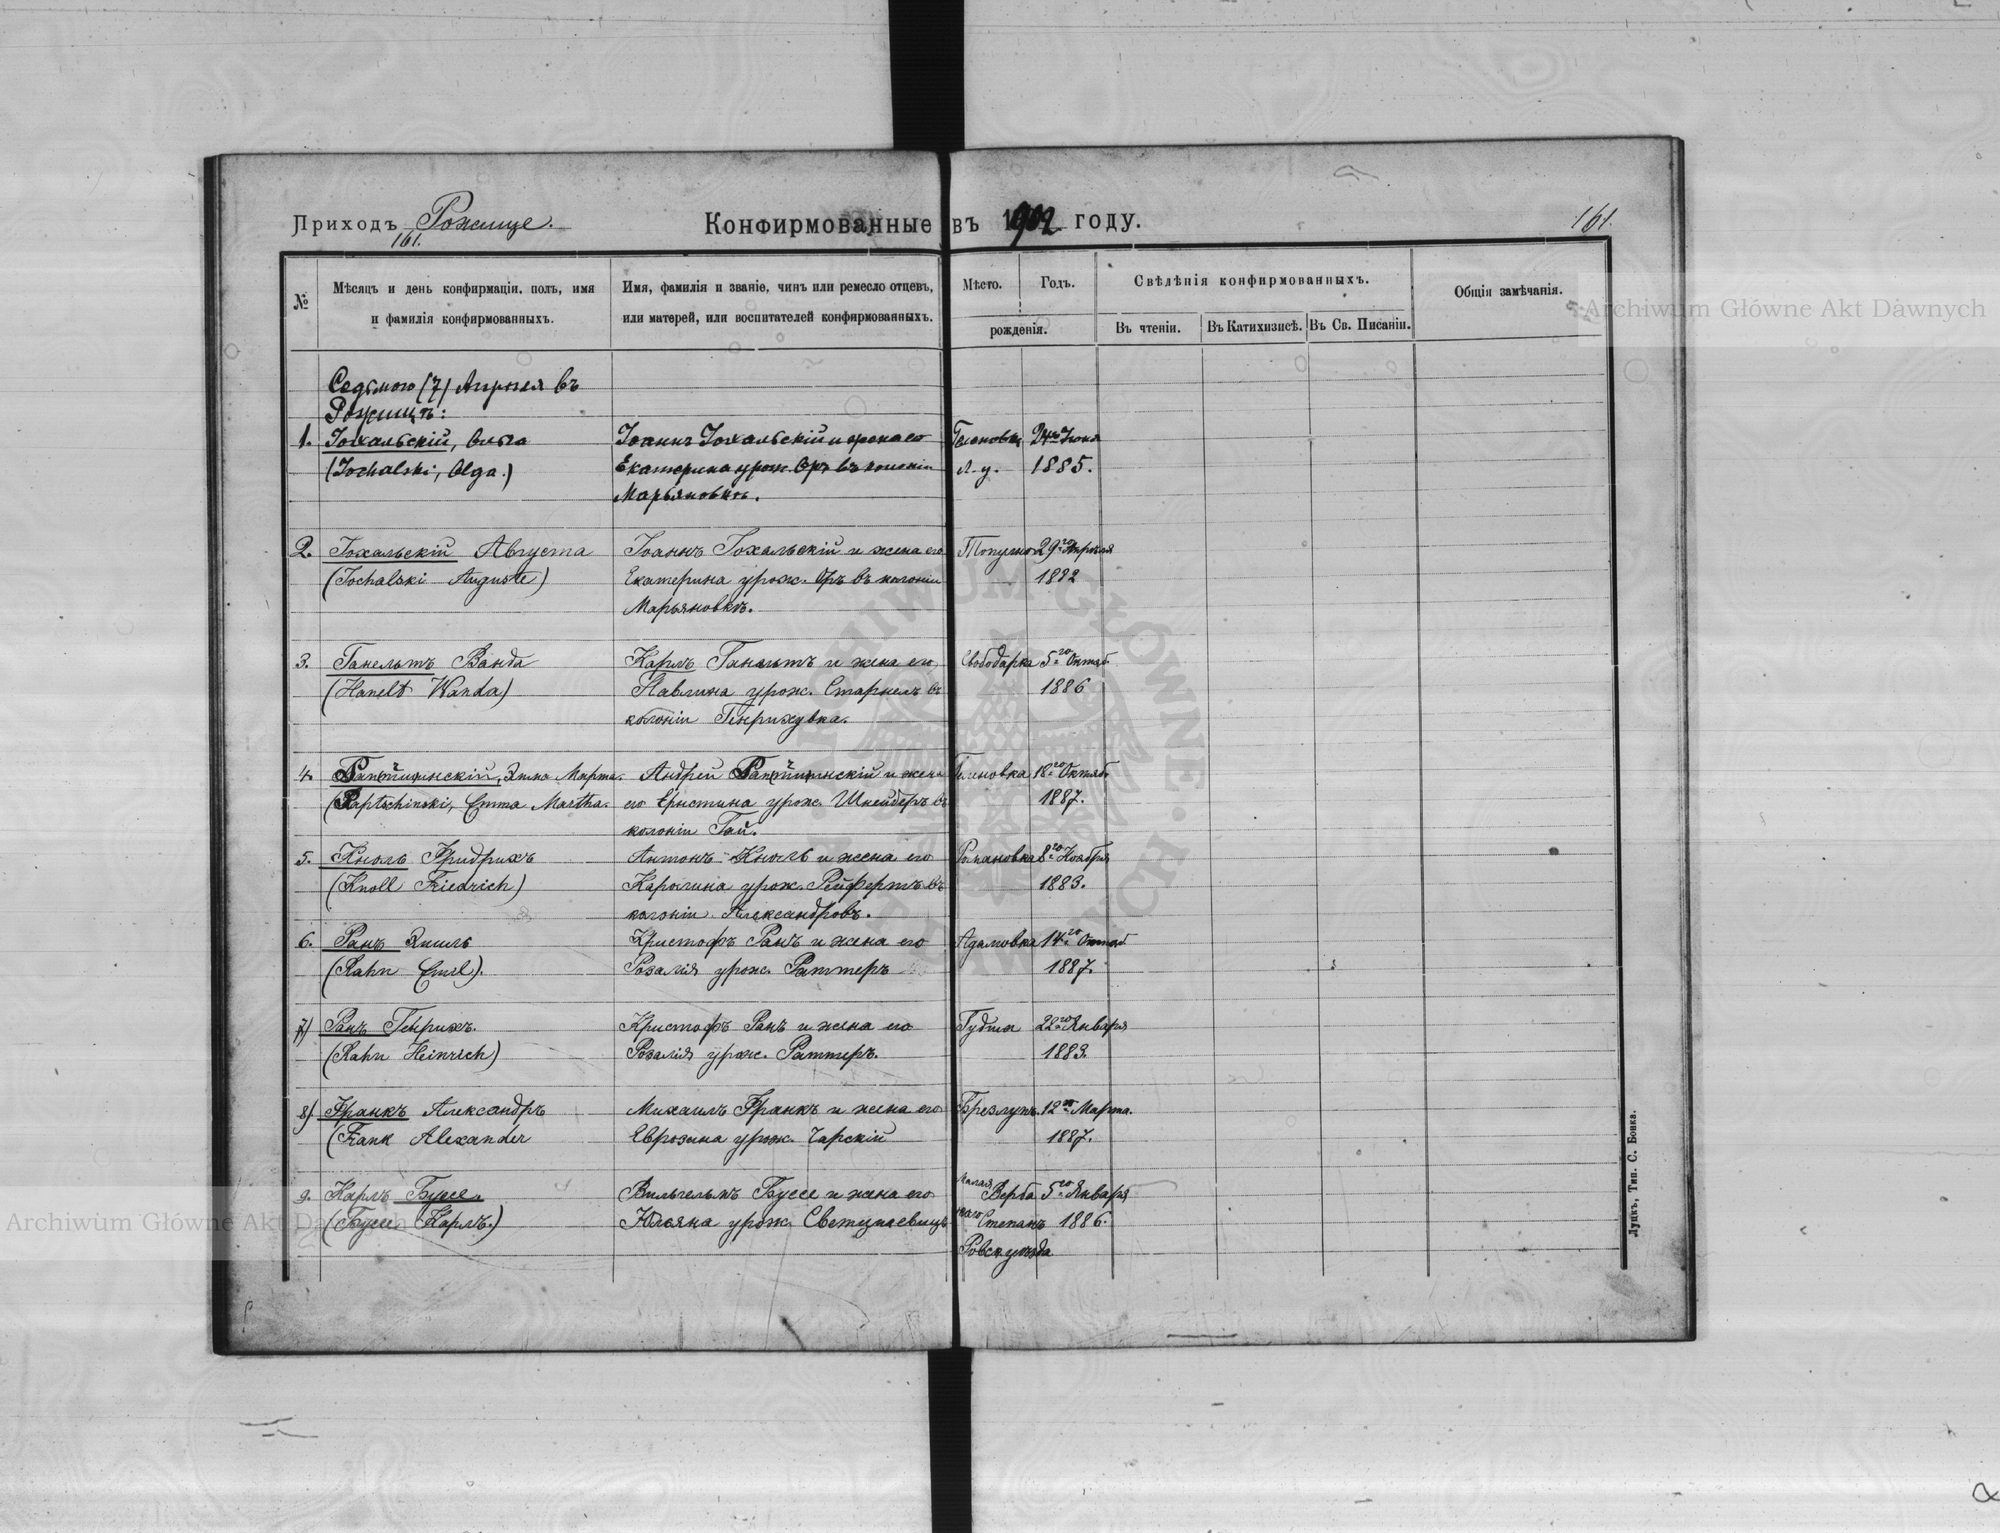 Приходъ Рожище.
161.
Конфирмованные въ 1902 году.
161.
№
Мѣсяцъ и день конфирмаціи, полъ, имя
и фамилія конфирмованныхъ.
Имя, фамилія и званіе, чинъ или ремесло отцевъ,
или матерей, или воспитателей конфирмованныхъ.
Мѣсто. Годъ.
рожденія.
Свѣдѣнія конфирмованныхъ.
Въ чтеніи. Въ Катихизисѣ. Въ Св. Писаніи.
Общія замѣчанія.
Archiwum Główne Akt Dawnych
Седьмого (7) Апрѣля въ
Рожищѣ:
1. Іохальскій, Ольга Іоаннъ Іохальскій и жена его 24го Іюня
(Jochalski, Olga.) Екатерина урож. Оръ въ колоніи Л. у. 1885.
Марьяновкѣ.
2. Іохальскій Августа Іоаннъ Іохальскій и жена его 29го Апрѣля
(Jochalski Auguste) Екатерина урож. Оръ въ колоніи 1882
Марьяновкѣ.
3. Ганельтъ Ванда Карлъ Ганельтъ и жена его Свободарка 5го Октяб.
(Hanelt Wanda) Павлина урож. въ 1886
колоніи Генриховка.
4. Эмма Марта. Андрей и жена 18го Октяб.
(Raptschinski, Emma Martha. его урож. Шнейдеръ въ 1887.
колоніи Гай.
5. Кноль Фридрихъ Антонъ Кноль и жена его Романовка 8го Ноября
(Knoll Friedrich) Каролина урож. Рейфертъ въ 1883.
колоніи Александровъ.
6. Ранъ Эмиль Христофъ Ранъ и жена его Адамовка 14го Октяб.
(Rahn Emil). Розалія урож. Раттеръ 1887.
7) Ранъ Генрихъ. Христофъ Ранъ и жена его 22го Января
(Rahn Heinrich) Розалія урож. Раттеръ. 1883.
8) Франкъ Александръ Михаилъ Франкъ и жена его 12го Марта.
(Frank Alexander Еврозина урож. Чарскій 1887.
9. Карлъ Буссе. Вильгельмъ Буссе и жена его Малая Верба 5го Января
(Буссе Карлъ.) Юльяна урож. Степанъ 1886.
Ровск. уѣзда
Луцкъ, Тип. С. Бонка.
Archiwum Główne Akt Dawnych
ARCHIWUM GŁÓWNE AKT DAWNYCH